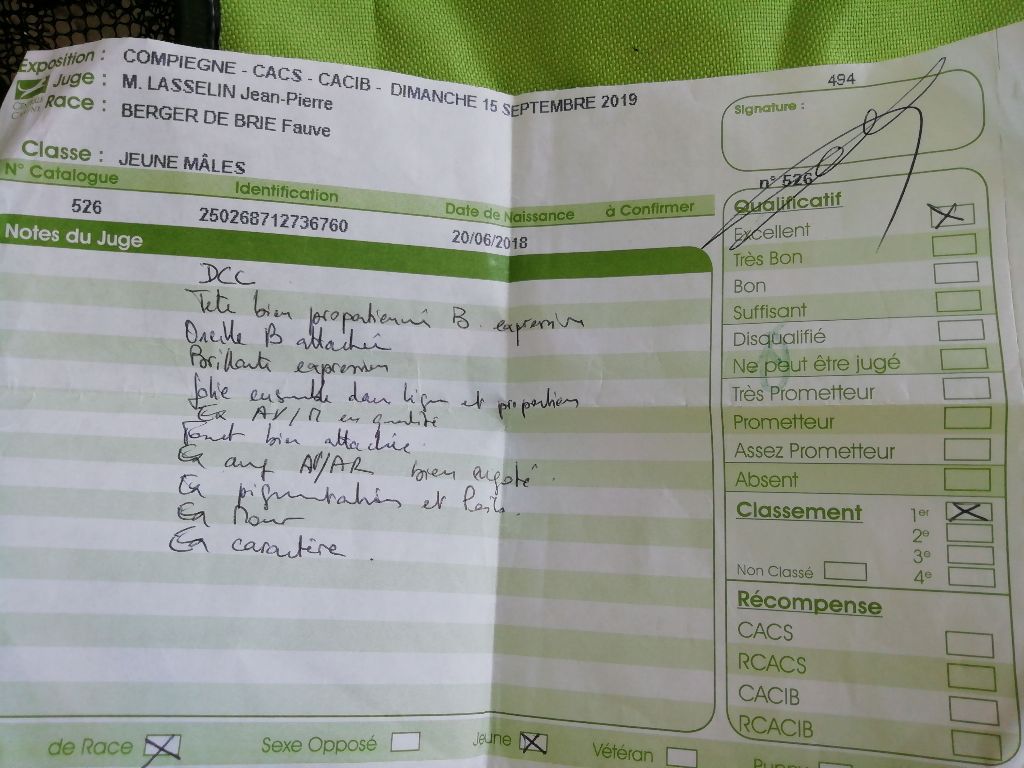 Exposition : COMPIEGNE - CACS - CACIB - DIMANCHE 15 SEPTEMBRE 2019
Juge : M. LASSELIN Jean-Pierre
Race : BERGER DE BRIE Fauve
Classe : JEUNE MÂLES
494
Signature :
n° 526
N° Catalogue Identification Date de Naissance à Confirmer
526 250268712736760 20/06/2018
Notes du Juge
DCC
Tete bien proportionné B. expression
Oreille B attachée
Brillante expression
Jolie ensemble dans ligne et proportion
Ex AV/M en qualité
Fouet bien attachée.
Ex ang AV/AR bien
Ex pigmentation et
Ex
Ex caractère.
Qualificatif
Excellent
Très Bon
Bon
Suffisant
Disqualifié
Ne peut être jugé
Très Prometteur
Prometteur
Assez Prometteur
Absent
Classement 1er
2e
3e
Non Classé 4e
Récompense
CACS
RCACS
CACIB
RCACIB
de Race Sexe Opposé Jeune Vétéran Puppy